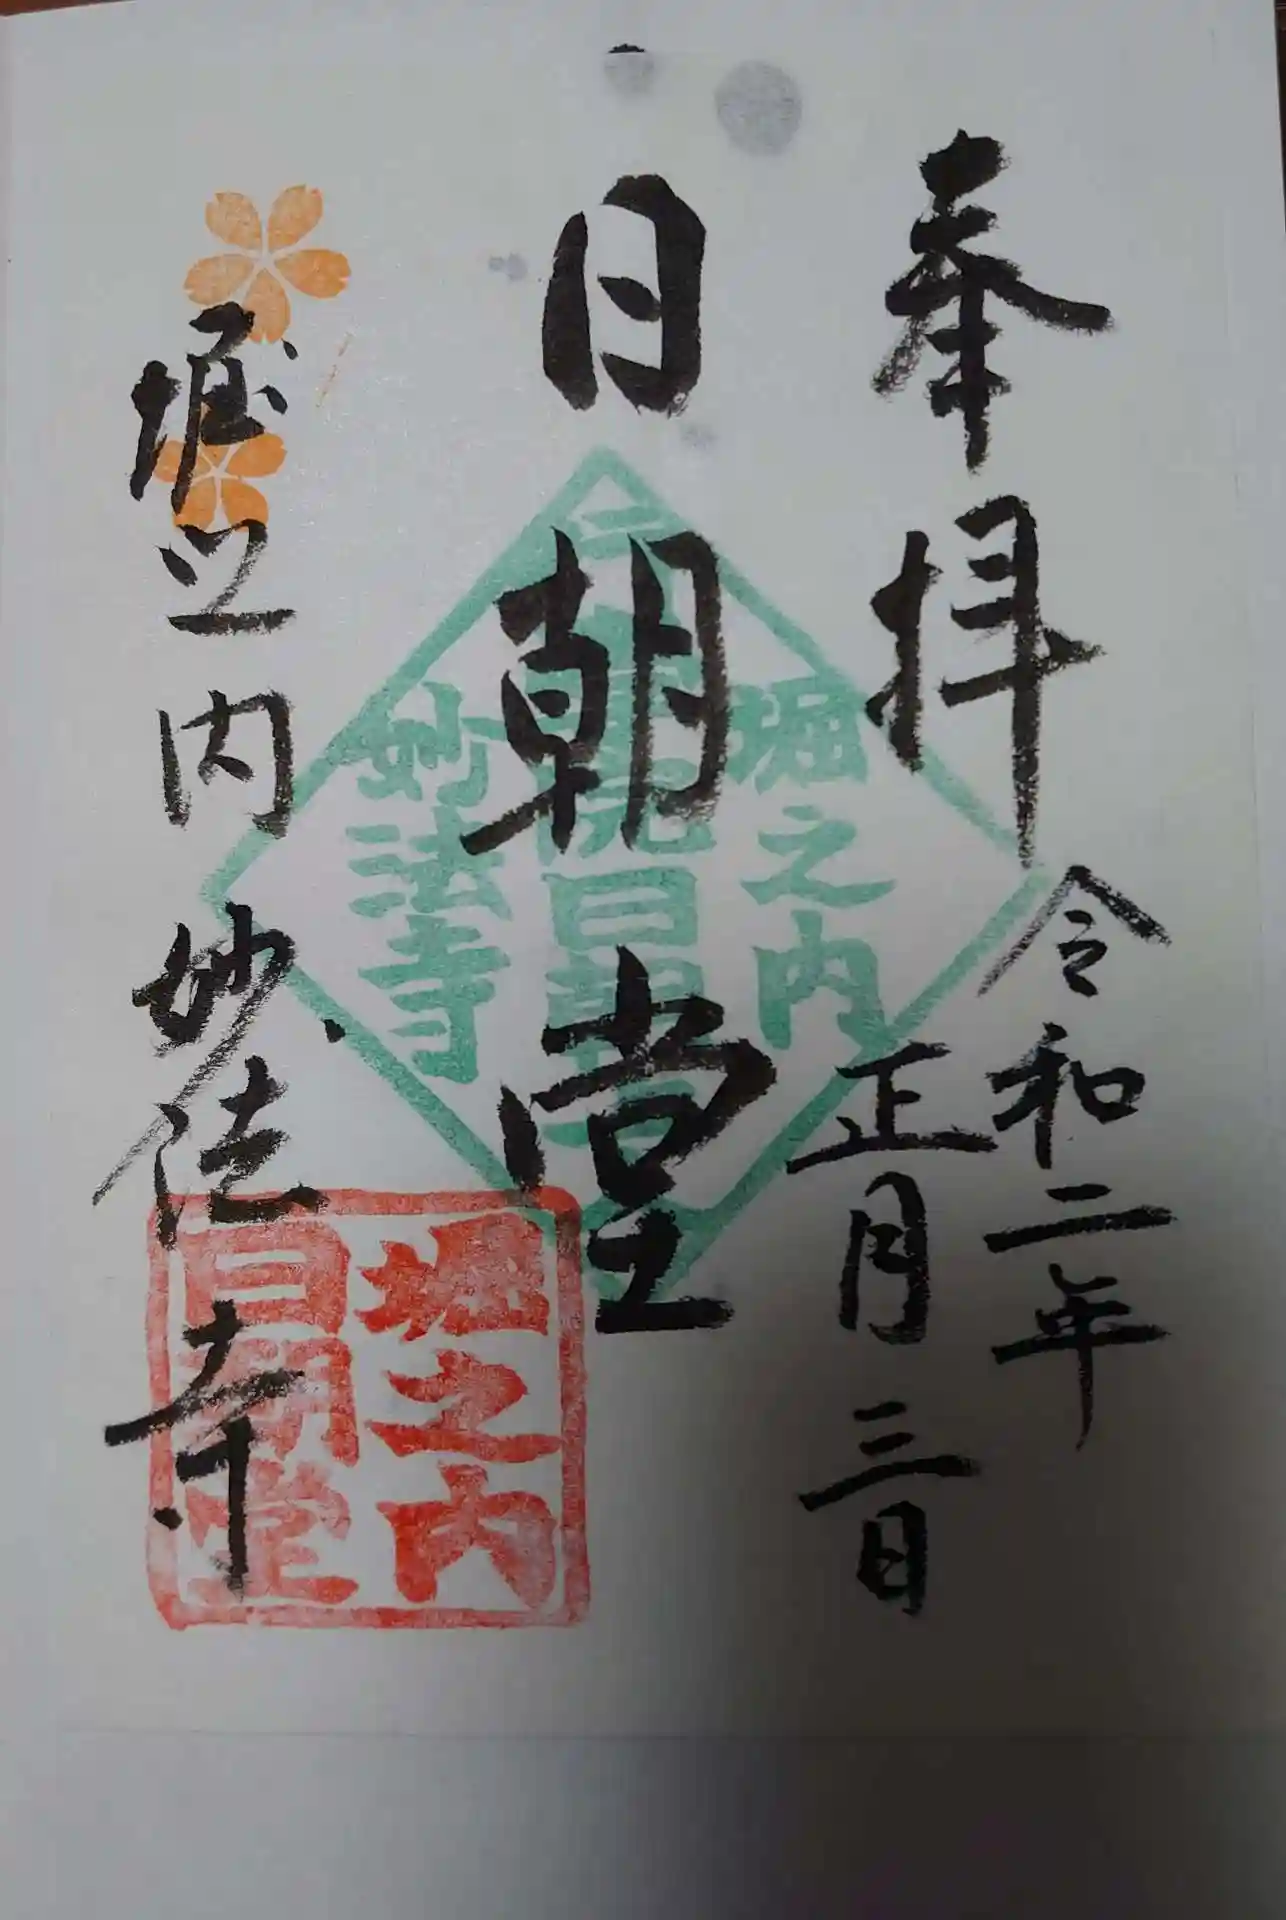 奉拝
令和二年
正月三日
日朝堂
堀之内妙法寺
堀之内
日朝堂
妙法寺
堀之内
日朝堂